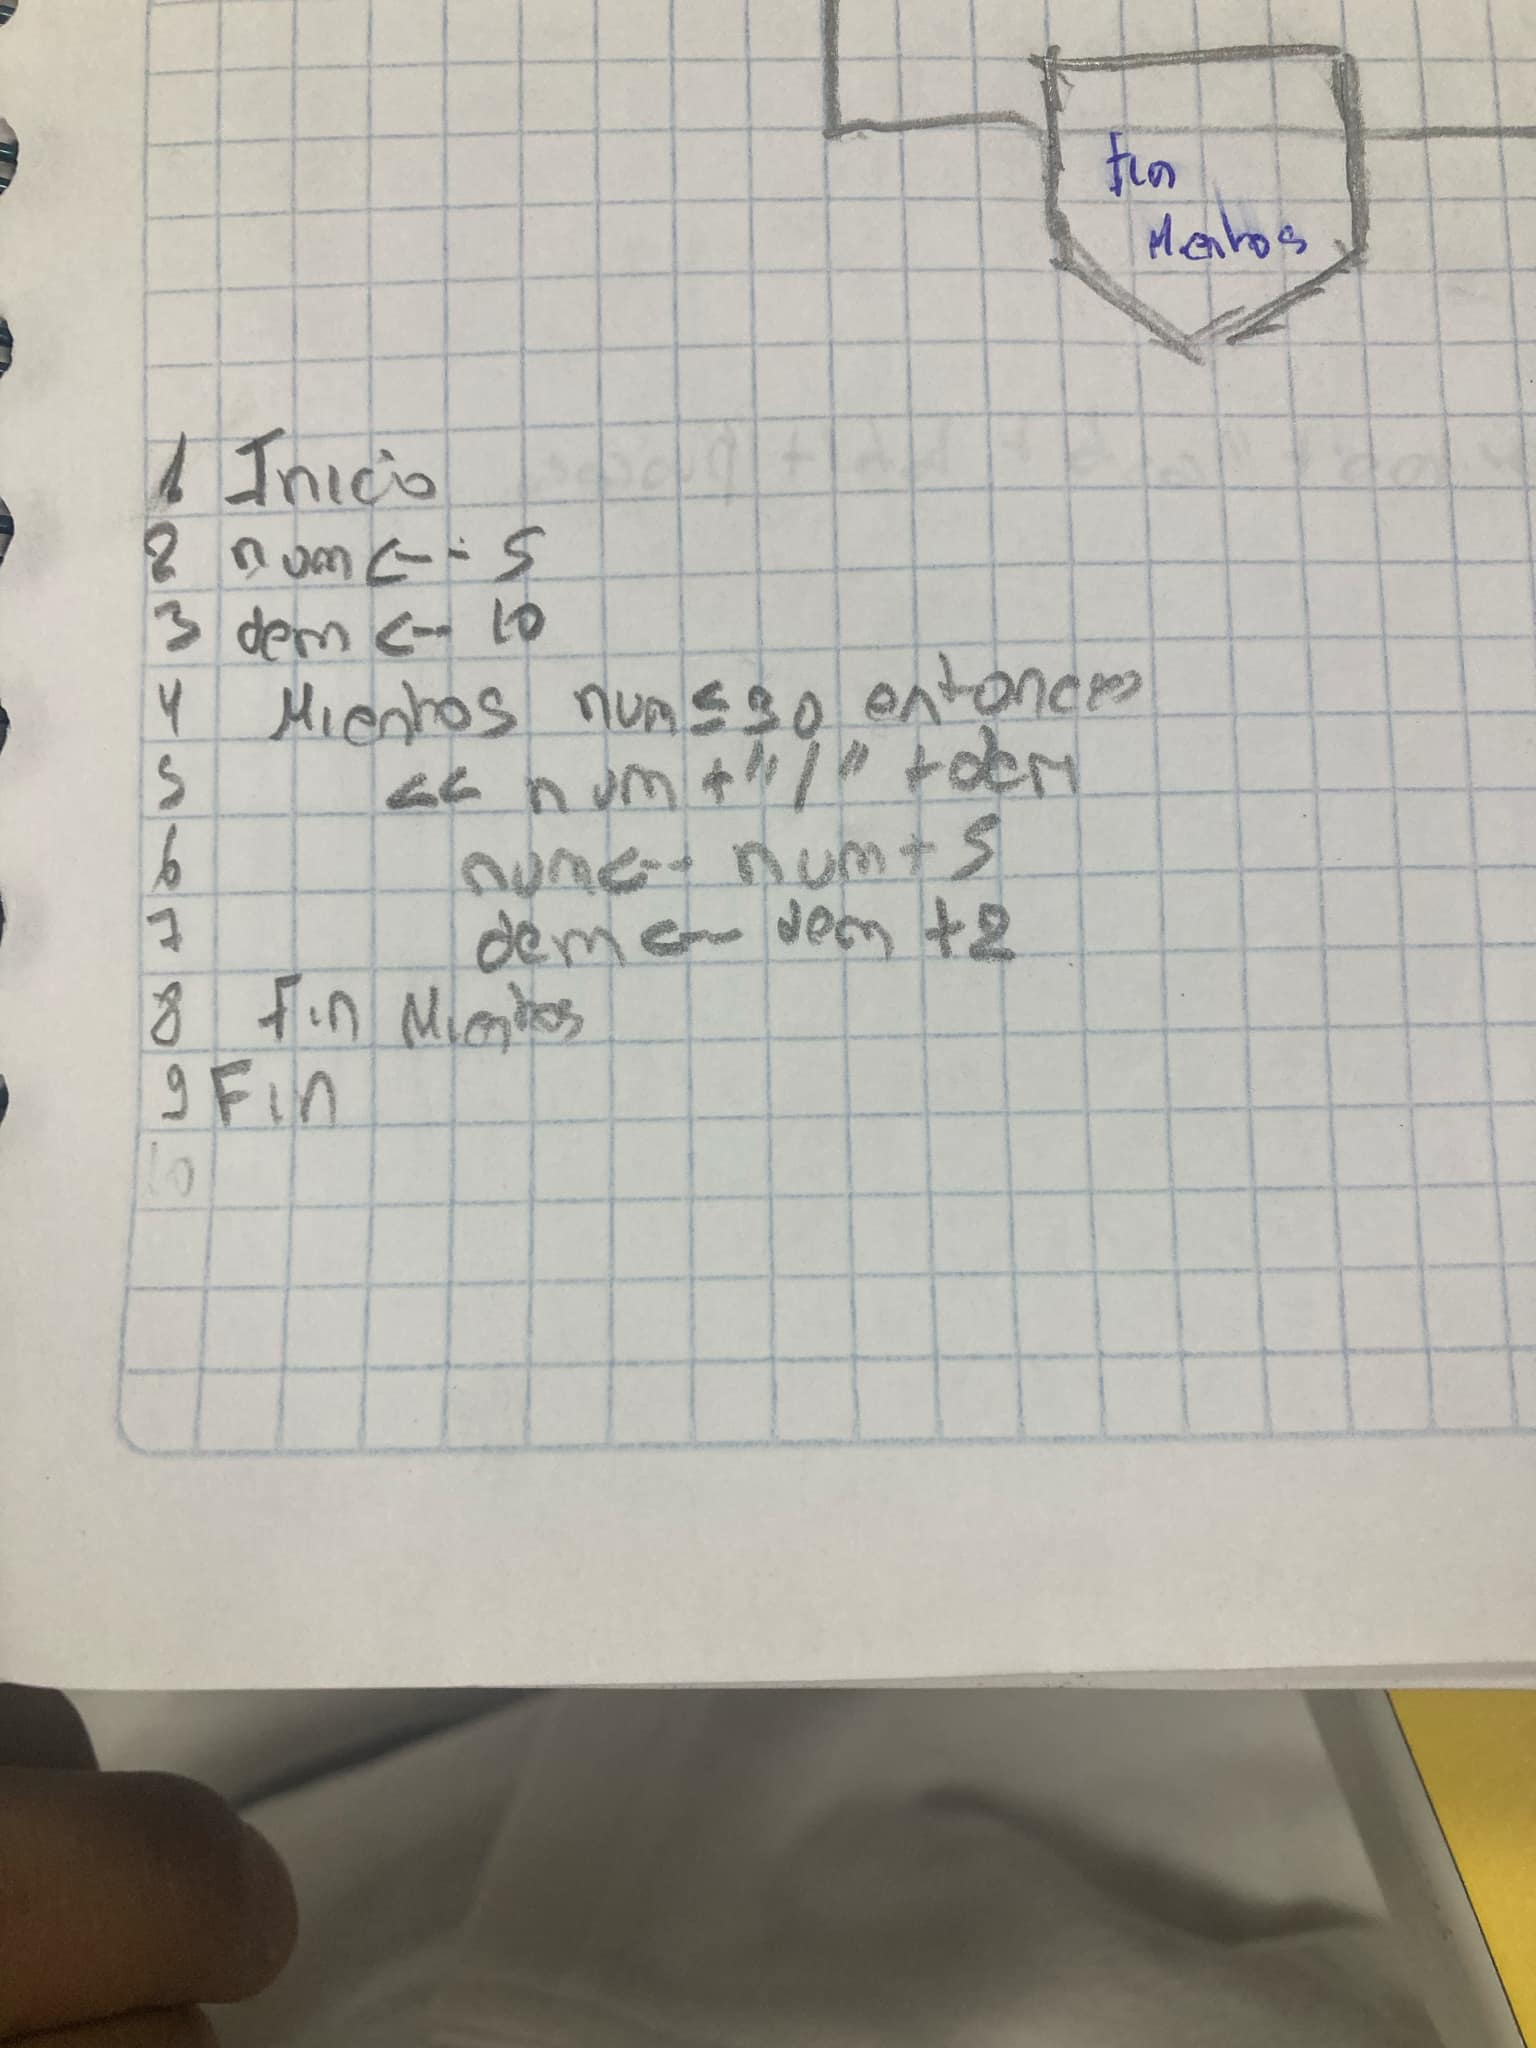 Fin
Mientras
1 Inicio
2 num <-- 5
3 dem <-- 10
4 Mientras num ≤ 30 entonces
5 << num + "/" + dem
6 num <-- num + 5
7 dem <-- dem + 2
8 Fin Mientras
9 Fin
10